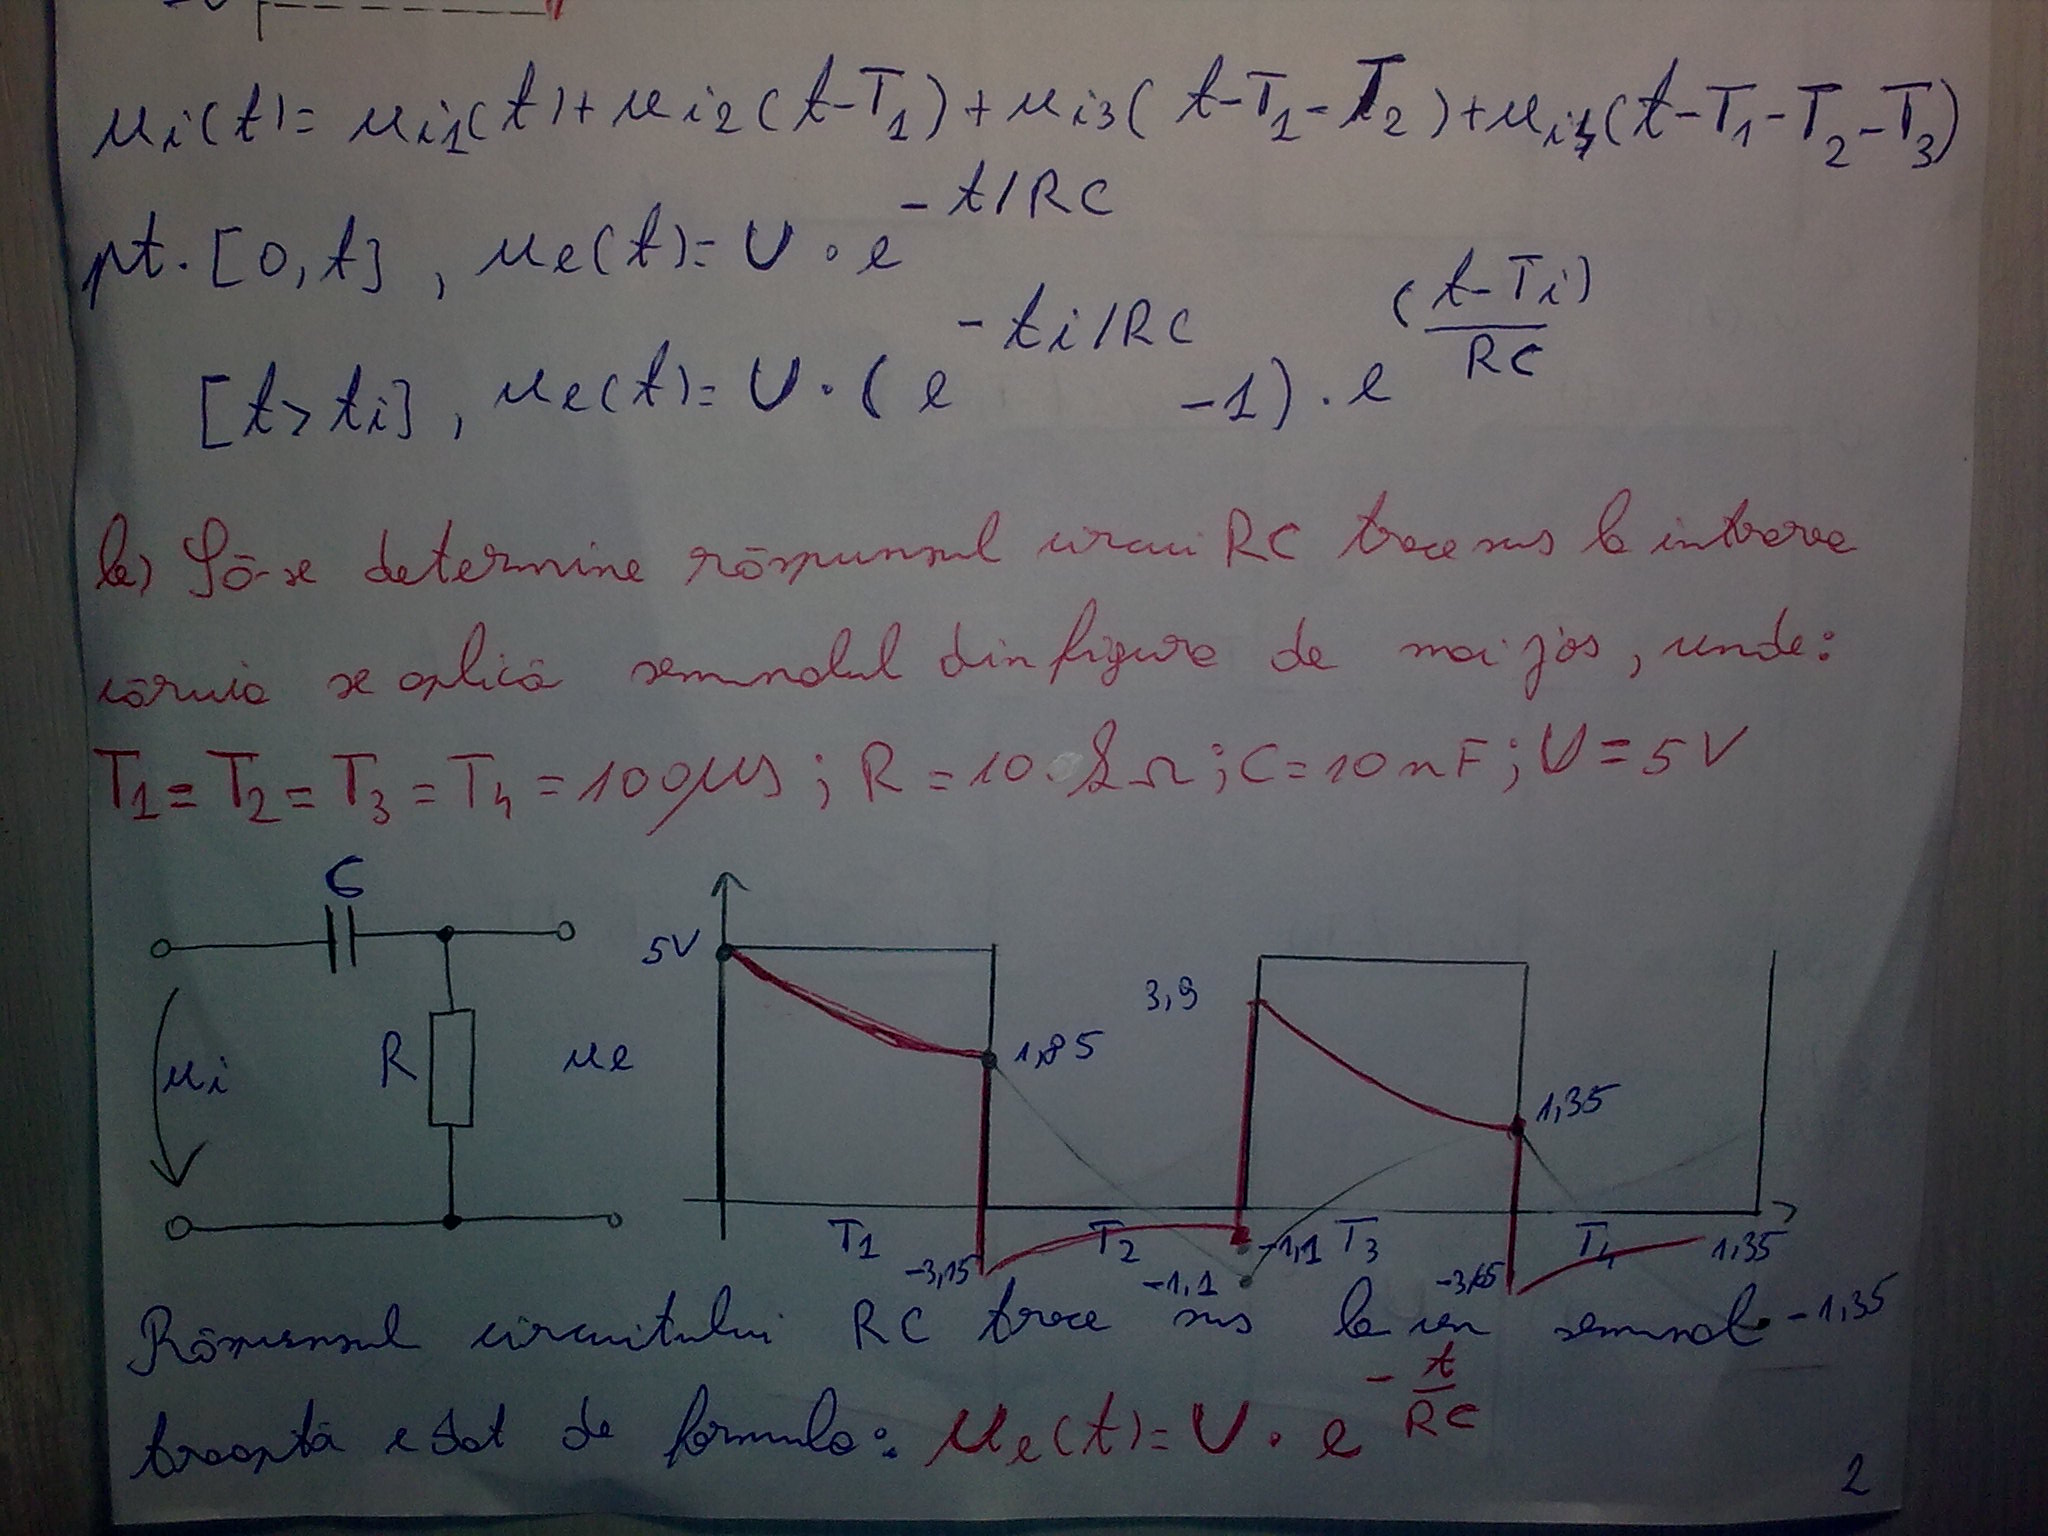 ui(t)= ui1(t)+ui2(t-T1)+ui3(t-T1-T2)+ui4(t-T1-T2-T3)
pt. [0,t] , ue(t)= U · e^-t/RC
[t>ti] , ue(t)= U · (e^-ti/RC -1) · e^(t-Ti)/RC
b) Să-se determine răspunsul circui RC trece sus la intrarea
căruia se aplică semnalul din figura de mai jos, unde:
T1 = T2 = T3 = T4 = 100µs ; R = 10 kΩ ; C = 10nF ; U = 5V
C
5V
3,9
ui
R
ue
1,85
1,35
T1
T2
T3
T4
-3,15
-1,1
-1,1
-3,65
1,35
-1,35
Răspunsul circuitului RC trece sus la un semnal
treaptă e dat de formula: ue(t)= U · e^-t/RC
2